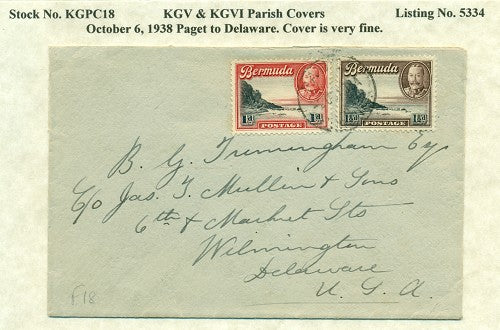 Stock No. KGPC18 KGV & KGVI Parish Covers Listing No. 5334
October 6, 1938 Paget to Delaware. Cover is very fine.
Bermuda Bermuda
1d 1d 1½d 1½d
POSTAGE POSTAGE
B. G. Trimingham Esq
c/o Jas. T. Mullin & Sons
6th & Market Sts
Wilmington
Delaware
U. S. A.
F18